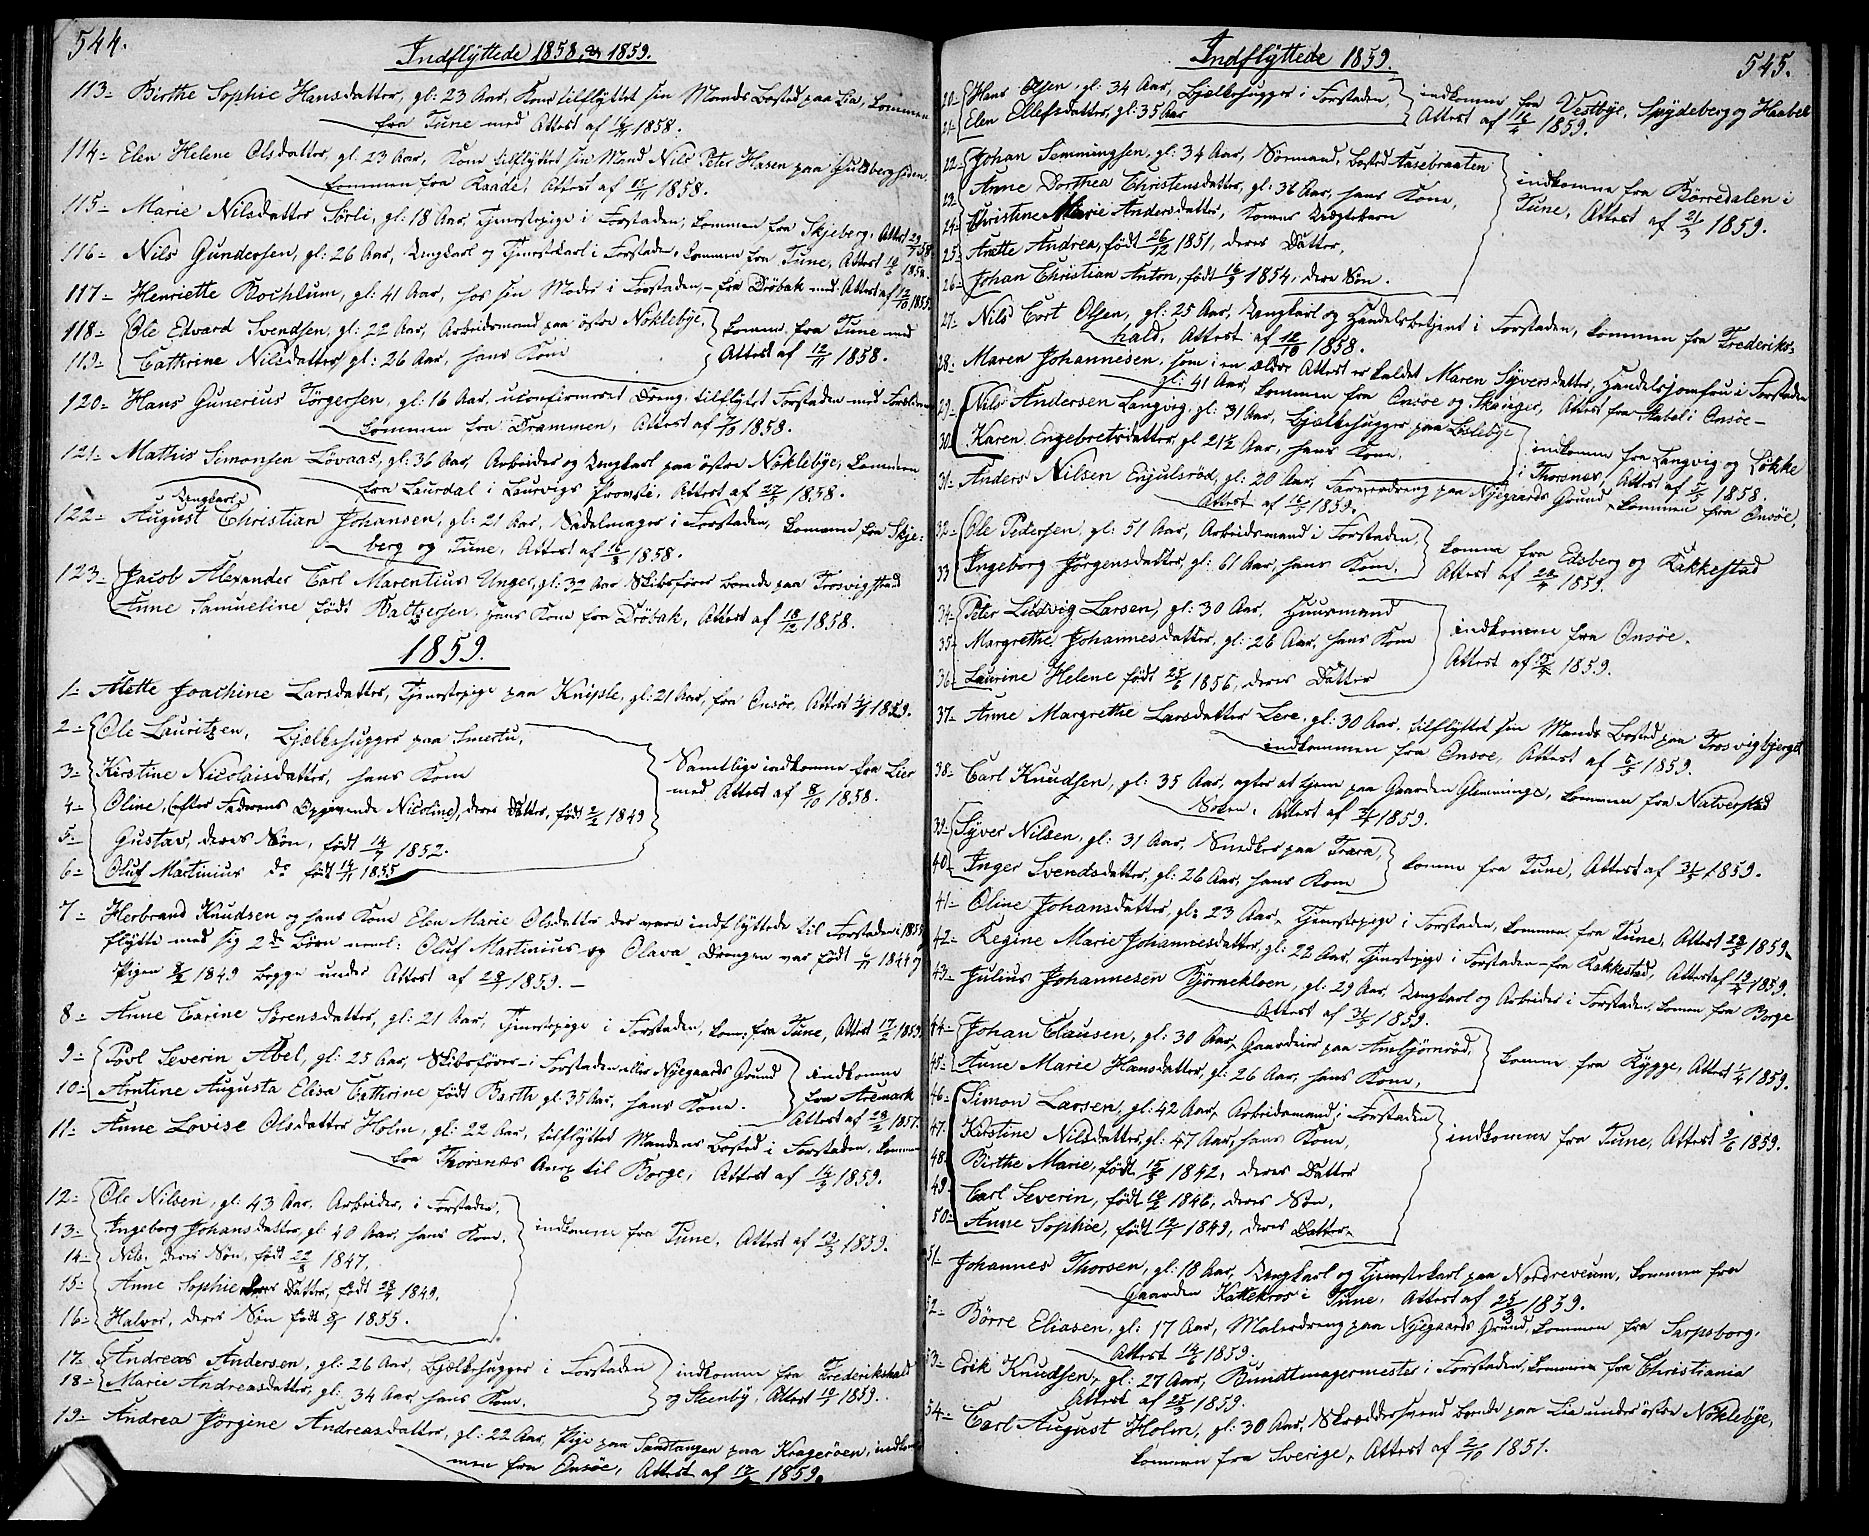 544.
Indflyttede 1858, & 1859.
113- Birthe Sophie Hansdatter, gl: 23 Aar, Kone tilflyttet sin Mands Bosted paa Lia, kommen
fra Tune med Attest af 1858.
114- Elen Helene Olsdatter, gl. 23 Aar, Kone tilflyttet sin Mand Nils Peter Hasen paa
kommen fra Raade, Attest af 1858.
115- Marie Nilsdatter Sørli, gl: 18 Aar, Tjenestepige i Forstaden, kommen fra Skjeberg, Attest
116- Nils Gundersen, gl: 26 Aar, Ungkarl og Tjenestekarl i Forstaden, kommen fra Tune, Attest 1858.
117- Henriette Bochlum, gl: 41 Aar, hos sin Moder i Forstaden, - fra Drøbak med Attest af
118- Ole Edvard Svendsen, gl: 22 Aar, Arbeidsmand paa østre Noklebye, komne fra Tune med
119- Cathrine Nilsdatter gl: 26 Aar, hans Kone Attest af 12/11 1858.
120- Hans Gunerius Törgersen, gl: 16 Aar, uconfirmeret Dreng, tilflyttet Forstaden med Forældrene
kommen fra Drammen, Attest af 1858.
121- Mathis Simonsen Lövaas, gl: 36 Aar, Arbeider og Ungkarl paa østre Noklebye, kommen
fra Laurdal i Laurvigs Provsti, Attest af 27/5 1858.
Ungkarl
122- August Christian Johansen, gl: 21 Aar, Sadelmager i Forstaden, kommen fra Skje-
berg og Tune, Attest af 1858.
123- Jacob Alexander Carl Marentius Unger, gl: 32 Aar Skibsfører boende paa Trosvigstad
Anne Samueline født hans Kone fra Drøbak, Attest af 18/12 1858.
1859.
1- Alette Joachine Larsdatter, Tjenestepige paa Kniple, gl: 21 Aar, fra Onsøe, Attest 1859.
2- Ole Lauritzen, Bjælkehugger paa Smertu,
3- Kirstine Nicolaisdatter, hans Kone Samtlige indkomne fra Lier
4- Oline, (efter Faderens Opgivende Nicoline), deres Datter, født 2/2 1849 med Attest af 8/10 1858.
5- Gustav, deres Søn, født 14/7 1852.
6- Oluf Martinius do født 14/11 1855
7- Herbrand Knudsen og hans Kone Elen Marie Olsdatter der vare indflyttede til Forstaden i
flytte med sig 2de Børn neml: Oluf Martinius og Olava - Drengen var født 1844 og
Pigen 1849 begge under Attest af 1859. -
8- Anne Carine Sørensdatter, gl: 21 Aar, Tjenestepige i Forstaden, kom: fra Tune, Attest 17/2 1859
9- Povl Severin Abel, gl: 25 Aar, Skibsfører i Forstaden eller Nyegaards Grund indkomne
10- Arntine Augusta Elisa Cathrine født Barth gl. 35 Aar, hans Kone. fra Aremark
Attest af 28/2 1857.
11- Anne Lovise Olsdatter Holm, gl: 22 Aar, tilflyttet Mandens Bosted i Forstaden, kommen
fra Thorsnæs Anx til Borge, Attest af 14/3 1859.
12- Ole Nilsen, gl: 43 Aar, Arbeider, i Forstaden,
13- Ingeborg Johansdatter, gl. 40 Aar, hans Kone, indkomne fra Tune, Attest af 19/3 1859.
14- Nils, deres Søn, født 22/8 1847.
15- Anne Sophie deres Datter, født 1849.
16- Halvor, deres Søn født 1855.
17- Andreas Andersen, gl: 26 Aar, Bjælkehugger i Forstaden indkomne fra Frederikshald
18- Marie Andreasdatter, gl: 34 Aar, hans Kone. og Steenby, Attest 1859.
19- Andrea Jørgine Andreasdatter, gl: 22 Aar, Pige paa Sandtangen paa Kragerøen, indkom-
men fra Onsøe, Attest af 1859.
545.
Indflyttede 1859.
20- Hans Olsen, gl: 34 Aar, Bjælkehugger i Forstaden, indkomne fra Vestbye, Spydeberg og Haabøl
21- Elen Ellefsdatter, gl: 35 Aar Attest af 16/4 1859.
22- Johan Semmingsen, gl: 34 Aar, Sømand, bosted Aasebraaten
23- Anne Dorthea Christensdatter, gl: 36 Aar, hans Kone, indkomne fra Børredalen i
24- Christine Marie Andersdatter, Konens Uægtebarn Tune, Attest af 21/3 1859.
25- Anette Andrea, født 26/12 1851, deres Datter,
26- Johan Christian Anton, født 1854, deres Søn.
27- Nils Cort Olsen, gl: 25 Aar, Ungkarl og Handelsbetjent i Forstaden, kommen fra Frederiks-
hald, Attest af 12/10 1858.
28- Maren Johannesen, som i en ældre Attest er kaldet Maren Syversdatter, Handelsjomfru i Forstaden
gl: 41 Aar, kommen fra Onsøe og Stavanger, Attest fra i Onsøe -
29- Nils Andersen Langvig, gl: 31 Aar, Bjælkehugger paa Lislebye
30- Karen Engebretsdatter, gl 21½ Aar, hans Kone, indkomne fra Langvig og Løkke
i Thorsnæs, Attest af 1858.
31- Anders Nilsen Enjulsrød, gl: 20 Aar, Farverdreng paa Nyegaards Grund, kommen fra Onsøe,
Attest af 1859.
32- Ole Pedersen, gl: 51 Aar, Arbeidsmand i Forstaden, komne fra Edsberg og Rakkestad
33 Ingeborg Jørgensdatter, gl: 61 Aar, hans Kone, Attest af 1859.
34- Peter Ludvig Larsen, gl: 30 Aar, Huusmand
35- Margrethe Johannesdatter, gl: 26 Aar, hans Kone indkomne fra Onsøe.
36- Laurine Helene født 25/6 1856, deres Datter Attest af 1859.
37- Anne Margrethe Larsdatter Lere, gl: 30 Aar, tilflyttet sin Mands bosted paa Trosvigbjerget
indkommen fra Onsøe, Attest af 1859.
38- Carl Knudsen, gl: 35 Aar, agter at tjene paa Gaarden Glemminge, kommen fra Natvedstad
Attest af 1859.
39- Syver Nilsen, gl: 31 Aar, Snedker paa Trara,
40- Inger Svendsdatter, gl: 26 Aar, hans Kone komne fra Tune, Attest af 1859.
41- Oline Johansdatter, gl: 23 Aar, Tjenestepige i Forstaden, kommen fra Tune, Attest 1859.
42- Regine Marie Johannesdatter, gl: 22 Aar, Tjenestepige i Forstaden - fra Rakkestad, Attest af 1859.
43- Julius Johannesen Bjørnekloen, gl: 29 Aar, Ungkarl og Arbeider i Forstaden, kommen fra Borge
Attest af 1859.
44- Johan Clausen, gl: 30 Aar, Gaardeier paa Ambjørnrød,
45- Anne Marie Hansdatter, gl: 26 Aar, hans Kone, komne fra Rygge, Attest 1859.
46- Simon Larsen, gl: 42 Aar, Arbeidsmand i Forstaden
47- Kirstine Nilsdatter, gl: 47 Aar, hans Kone, indkomne fra Tune, Attest 1859.
48- Birthe Marie, født 1842, deres Datter
49- Carl Severin, født 1846, deres Søn,
50- Anne Sophie, født 1849, deres Datter.
51- Johannes Thorsen, gl: 18 Aar, Ungkarl og Tjenestekarl paa Nordreveum, kommen fra
Gaarden Kattekros i Tune, Attest af 25/3 1859.
52- Börre Eliasen, gl: 17 Aar, Malerdreng paa Nyegaards Grund, kommen fra Sarpsborg,
Attest 1859.
53- Erik Knudsen, gl: 27 Aar, Bundtmagermester i Forstaden, kommen fra Christiania
Attest af 25/3 1859.
54- Carl August Holm, gl: 30 Aar, Skræddersvend boende paa Lia under østre Noklebye,
kommen fra Sverige, Attest af 2/10 1851.